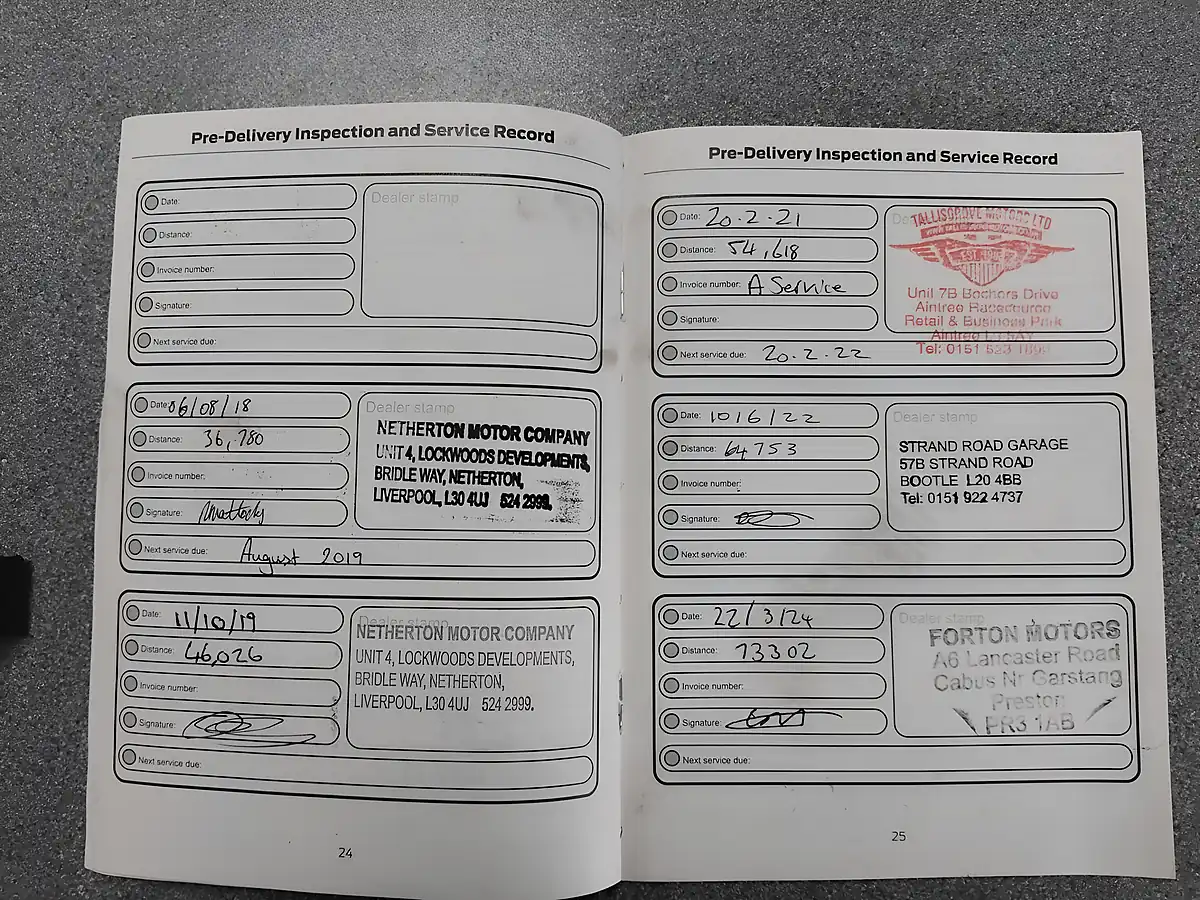 Pre-Delivery Inspection and Service Record
Date:
Dealer stamp
Distance:
Invoice number:
Signature:
Next service due:
Date: 06/08/18
Dealer stamp
Distance: 36,780
NETHERTON MOTOR COMPANY
UNIT 4, LOCKWOODS DEVELOPMENTS,
BRIDLE WAY, NETHERTON,
LIVERPOOL, L30 4UJ 524 2999.
Invoice number:
Signature:
Next service due: August 2019
Date: 11/10/19
Dealer stamp
Distance: 46,026
NETHERTON MOTOR COMPANY
UNIT 4, LOCKWOODS DEVELOPMENTS,
BRIDLE WAY, NETHERTON,
LIVERPOOL, L30 4UJ 524 2999.
Invoice number:
Signature:
Next service due:
24
Pre-Delivery Inspection and Service Record
Date: 20.2.21
Distance: 54,618
TALLISGROVE MOTORS LTD
Unit 7B Bechers Drive
Aintree Racecourse
Retail & Business Park
Aintree
Tel: 0151 523
Invoice number: A Service
Signature:
Next service due: 20.2.22
Date: 10/6/22
Dealer stamp
Distance: 64753
STRAND ROAD GARAGE
57B STRAND ROAD
BOOTLE L20 4BB
Tel: 0151 922 4737
Invoice number:
Signature:
Next service due:
Date: 22/3/24
Dealer stamp
Distance: 73302
FORTON MOTORS
A6 Lancaster Road
Cabus Nr Garstang
Preston
PR3 1AB
Invoice number:
Signature:
Next service due:
25